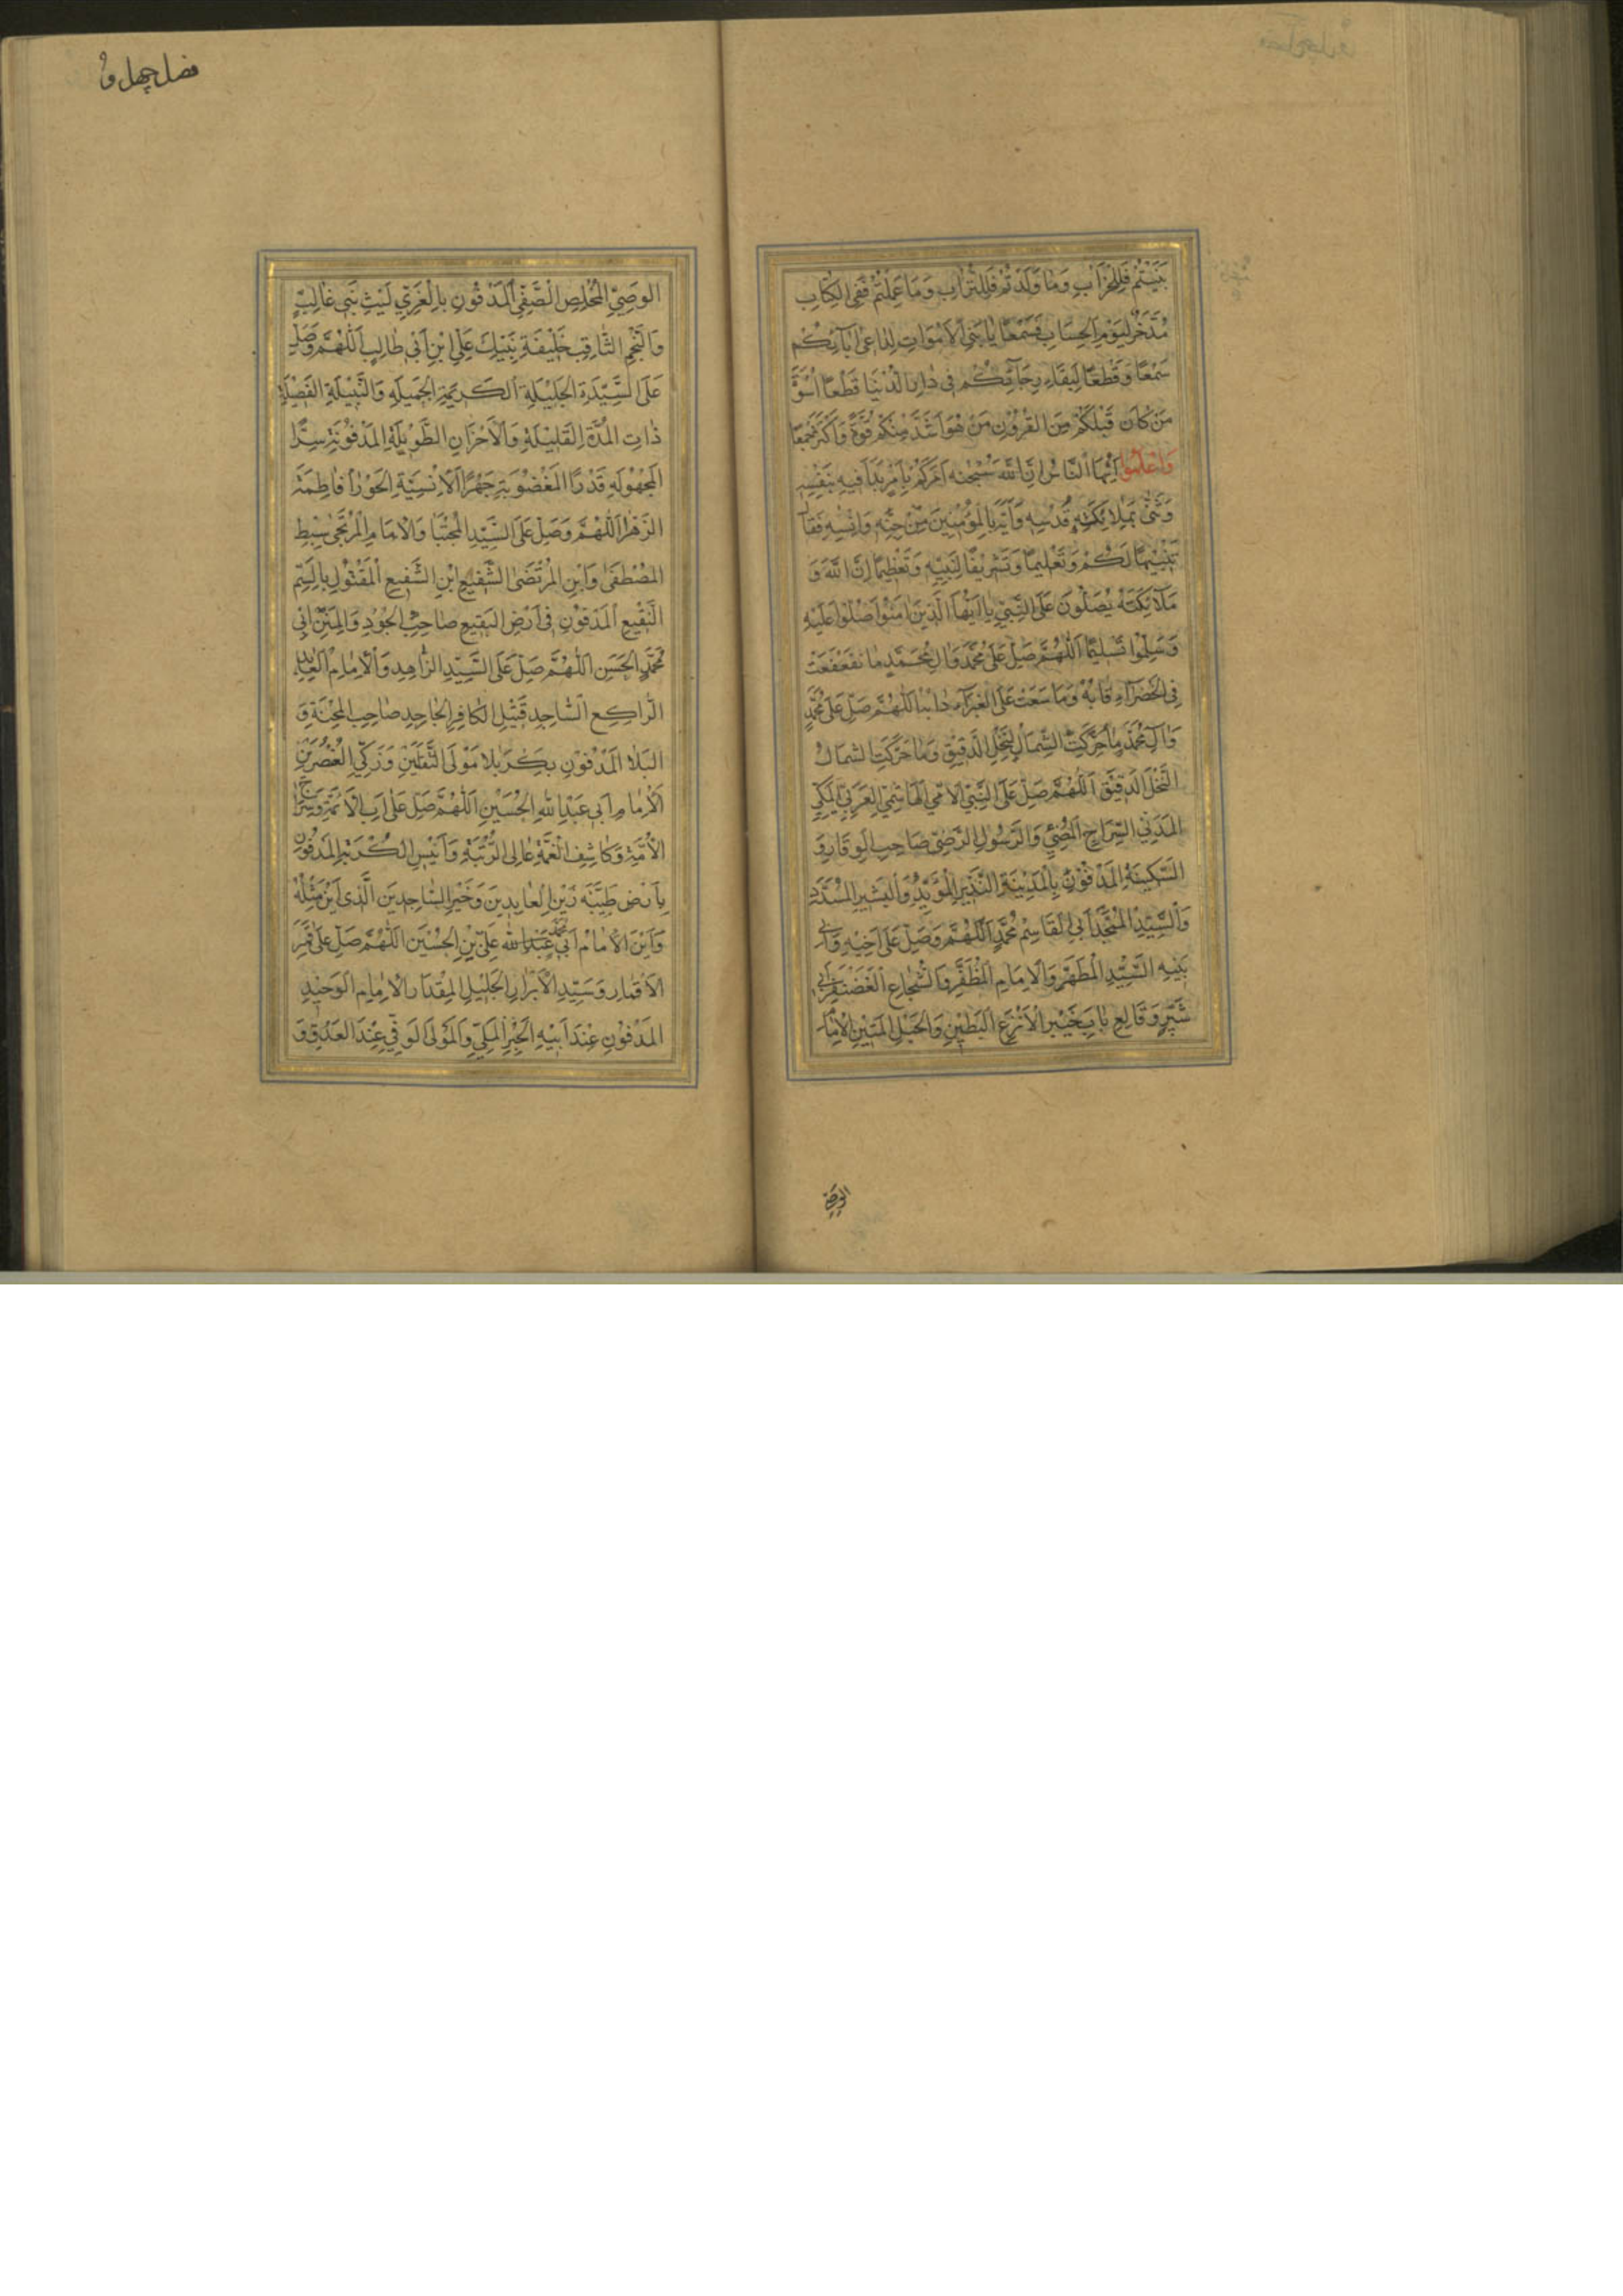 بَنَيْتُمْ فَلِلْخَرَابِ وَمَا وَلَدْتُمْ فَلِلتُّرَابِ وَمَا عَمِلْتُمْ فَفِى الْكِتَابِ
مُدَّخَرٌ لِيَوْمِ الْحِسَابِ فَسَمْعًا يَا بَنِى الْاَمْوَاتِ لِدَاعِى اٰبَآئِكُمْ
سَمْعًا وَقَطْعًا لِبَقَاءِ رَجَآئِكُمْ فِى دَارِ الدُّنْيَا قَطْعًا اُسْوَةً
مَنْ كَانَ قَبْلَكُمْ مِنَ الْقُرُوْنِ مَنْ هُوَ اَشَدُّ مِنْكُمْ قُوَّةً وَاَكْثَرُ جَمْعًا
وَاعْلَمُوْا اَيُّهَا النَّاسُ اِنَّ اللّٰهَ سُبْحٰنَهُ اَمَرَكُمْ بِاَمْرٍ بَدَاَ فِيهِ بِنَفْسِهِ
وَثَنّٰى بِمَلَائِكَةِ قُدْسِهِ وَاَيَّهَ بِالْمُؤْمِنِينَ مِنْ جِنِّهِ وَاِنْسِهِ فَقَالَ
تَنْبِيْهًا لَكُمْ وَتَعْلِيمًا وَتَشْرِيفًا لِنَبِيِّهِ وَتَعْظِيمًا اِنَّ اللّٰهَ وَ
مَلَآئِكَتَهُ يُصَلُّونَ عَلَى النَّبِيِّ يَا اَيُّهَا الَّذِينَ اٰمَنُوْا صَلُّوْا عَلَيْهِ
وَسَلِّمُوْا تَسْلِيمًا اَللّٰهُمَّ صَلِّ عَلٰى مُحَمَّدٍ وَاٰلِ مُحَمَّدٍ مَا تَقَعْقَعَتْ
فِى الْخَضْرَآءِ قَابُهُ وَمَا سَعَتْ عَلَى الْغَبْرَآءِ دَابُّهَا اَللّٰهُمَّ صَلِّ عَلٰى مُحَمَّدٍ
وَاٰلِ مُحَمَّدٍ مَا حَرَّكَتِ الشِّمَالُ النَّخْلَ الدَّقِيْقَ وَمَا حَرَّكَتِ الشِّمَالُ
النَّخْلَ الدَّقِيْقَ اَللّٰهُمَّ صَلِّ عَلَى النَّبِيِّ الْاُمِّيِّ الْهَاشِمِيِّ الْعَرَبِيِّ الْمَكِّيِّ
الْمَدَنِيِّ السِّرَاجِ الْمُضِيْئِ وَالرَّسُولِ الرَّضِيِّ صَاحِبِ الْوَقَارِ وَ
السَّكِيْنَةِ الْمَدْفُوْنِ بِالْمَدِيْنَةِ النَّذِيْرِ الْمُؤَيَّدِ وَالْبَشِيرِ الْمُسَدَّدِ
وَالسَّيِّدِ الْمُمَجَّدِ اَبِى الْقَاسِمِ مُحَمَّدٍ اَللّٰهُمَّ وَصَلِّ عَلٰى اَخِيْهِ وَاَبِى
بَنِيهِ السَّيِّدِ الْمُطَهَّرِ وَالْاِمَامِ الْمُظَفَّرِ وَالشُّجَاعِ الْغَضَنْفَرِ اَبِى
شَبَّرٍ وَقَالِعِ بَابِ خَيْبَرَ الْاَنْزَعِ الْبَطِيْنِ وَالْحَبْلِ الْمَتِيْنِ الْاِمَامِ
الوصي
فصل چهل و
الْوَصِيِّ الْمُخْلِصِ الصَّفِيِّ الْمَدْفُونِ بِالْغَرِيِّ لَيْثِ بَنِى غَالِبٍ
وَالنَّجْمِ الثَّاقِبِ خَلِيْفَةِ نَبِيِّكَ عَلِيِّ ابْنِ اَبِى طَالِبٍ اَللّٰهُمَّ وَصَلِّ
عَلَى السَّيِّدَةِ الْجَلِيْلَةِ الْكَرِيْمَةِ الْجَمِيْلَةِ وَالنَّبِيْلَةِ الْفَضِيْلَةِ
ذَاتِ الْمُدَّةِ الْقَلِيْلَةِ وَالْاَحْزَانِ الطَّوِيْلَةِ الْمَدْفُوْنَةِ سِرًّا
الْمَجْهُوْلَةِ قَدْرًا الْمَغْضُوْبَةِ جَهْرًا الْاِنْسِيَّةِ الْحَوْرَاءِ فَاطِمَةَ
الزَّهْرَا اَللّٰهُمَّ وَصَلِّ عَلَى السَّيِّدِ الْمُجْتَبَا وَالْاِمَامِ الْمُرْتَجٰى سِبْطِ
الْمُصْطَفٰى وَابْنِ الْمُرْتَضَى الشَّفِيعِ ابْنِ الشَّفِيعِ الْمَقْتُوْلِ بِالسَّمِّ
النَّقِيْعِ الْمَدْفُوْنِ فِى اَرْضِ الْبَقِيعِ صَاحِبِ الْجُوْدِ وَالْمِنَنِ اَبِى
مُحَمَّدٍ الْحَسَنِ اَللّٰهُمَّ صَلِّ عَلَى السَّيِّدِ الزَّاهِدِ وَالْاِمَامِ الْعَابِدِ
الرَّاكِعِ السَّاجِدِ قَتِيْلِ الْكَافِرِ الْجَاحِدِ صَاحِبِ الْمِحْنَةِ وَ
الْبَلَا الْمَدْفُوْنِ بِكَرْبَلَا مَوْلَى الثَّقَلَيْنِ وَزَكِيِّ الْعُنْصُرَيْنِ
الْاِمَامِ اَبِى عَبْدِ اللّٰهِ الْحُسَيْنِ اَللّٰهُمَّ صَلِّ عَلٰى اَبِ الْاَئِمَّةِ وَسِرَاجِ
الْاُمَّةِ وَكَاشِفِ الْغُمَّةِ عَالِى الرُّتْبَةِ وَاَنِيْسِ الْكُرْبَةِ الْمَدْفُوْنِ
بِاَرْضِ طَيِّبَةَ زَيْنِ الْعَابِدِيْنَ وَخَيْرِ السَّاجِدِيْنَ الَّذِى اَيْنَ مِثْلُهُ
وَاَيْنَ الْاِمَامِ اَبِى مُحَمَّد عَبْدِ اللّٰهِ عَلِيِّ بْنِ الْحُسَيْنِ اَللّٰهُمَّ صَلِّ عَلٰى قَمَرِ
الْاَقْمَارِ وَسَيِّدِ الْاَبْرَارِ الْجَلِيْلِ الْمِقْدَارِ الْاِمَامِ الْوَحِيْدِ
الْمَدْفُوْنِ عِنْدَ اَبِيْهِ الْحِبْرِ الْمَلِيِّ وَالْمَوْلَى الْوَفِيِّ عِنْدَ الْعَدُوِّ وَ